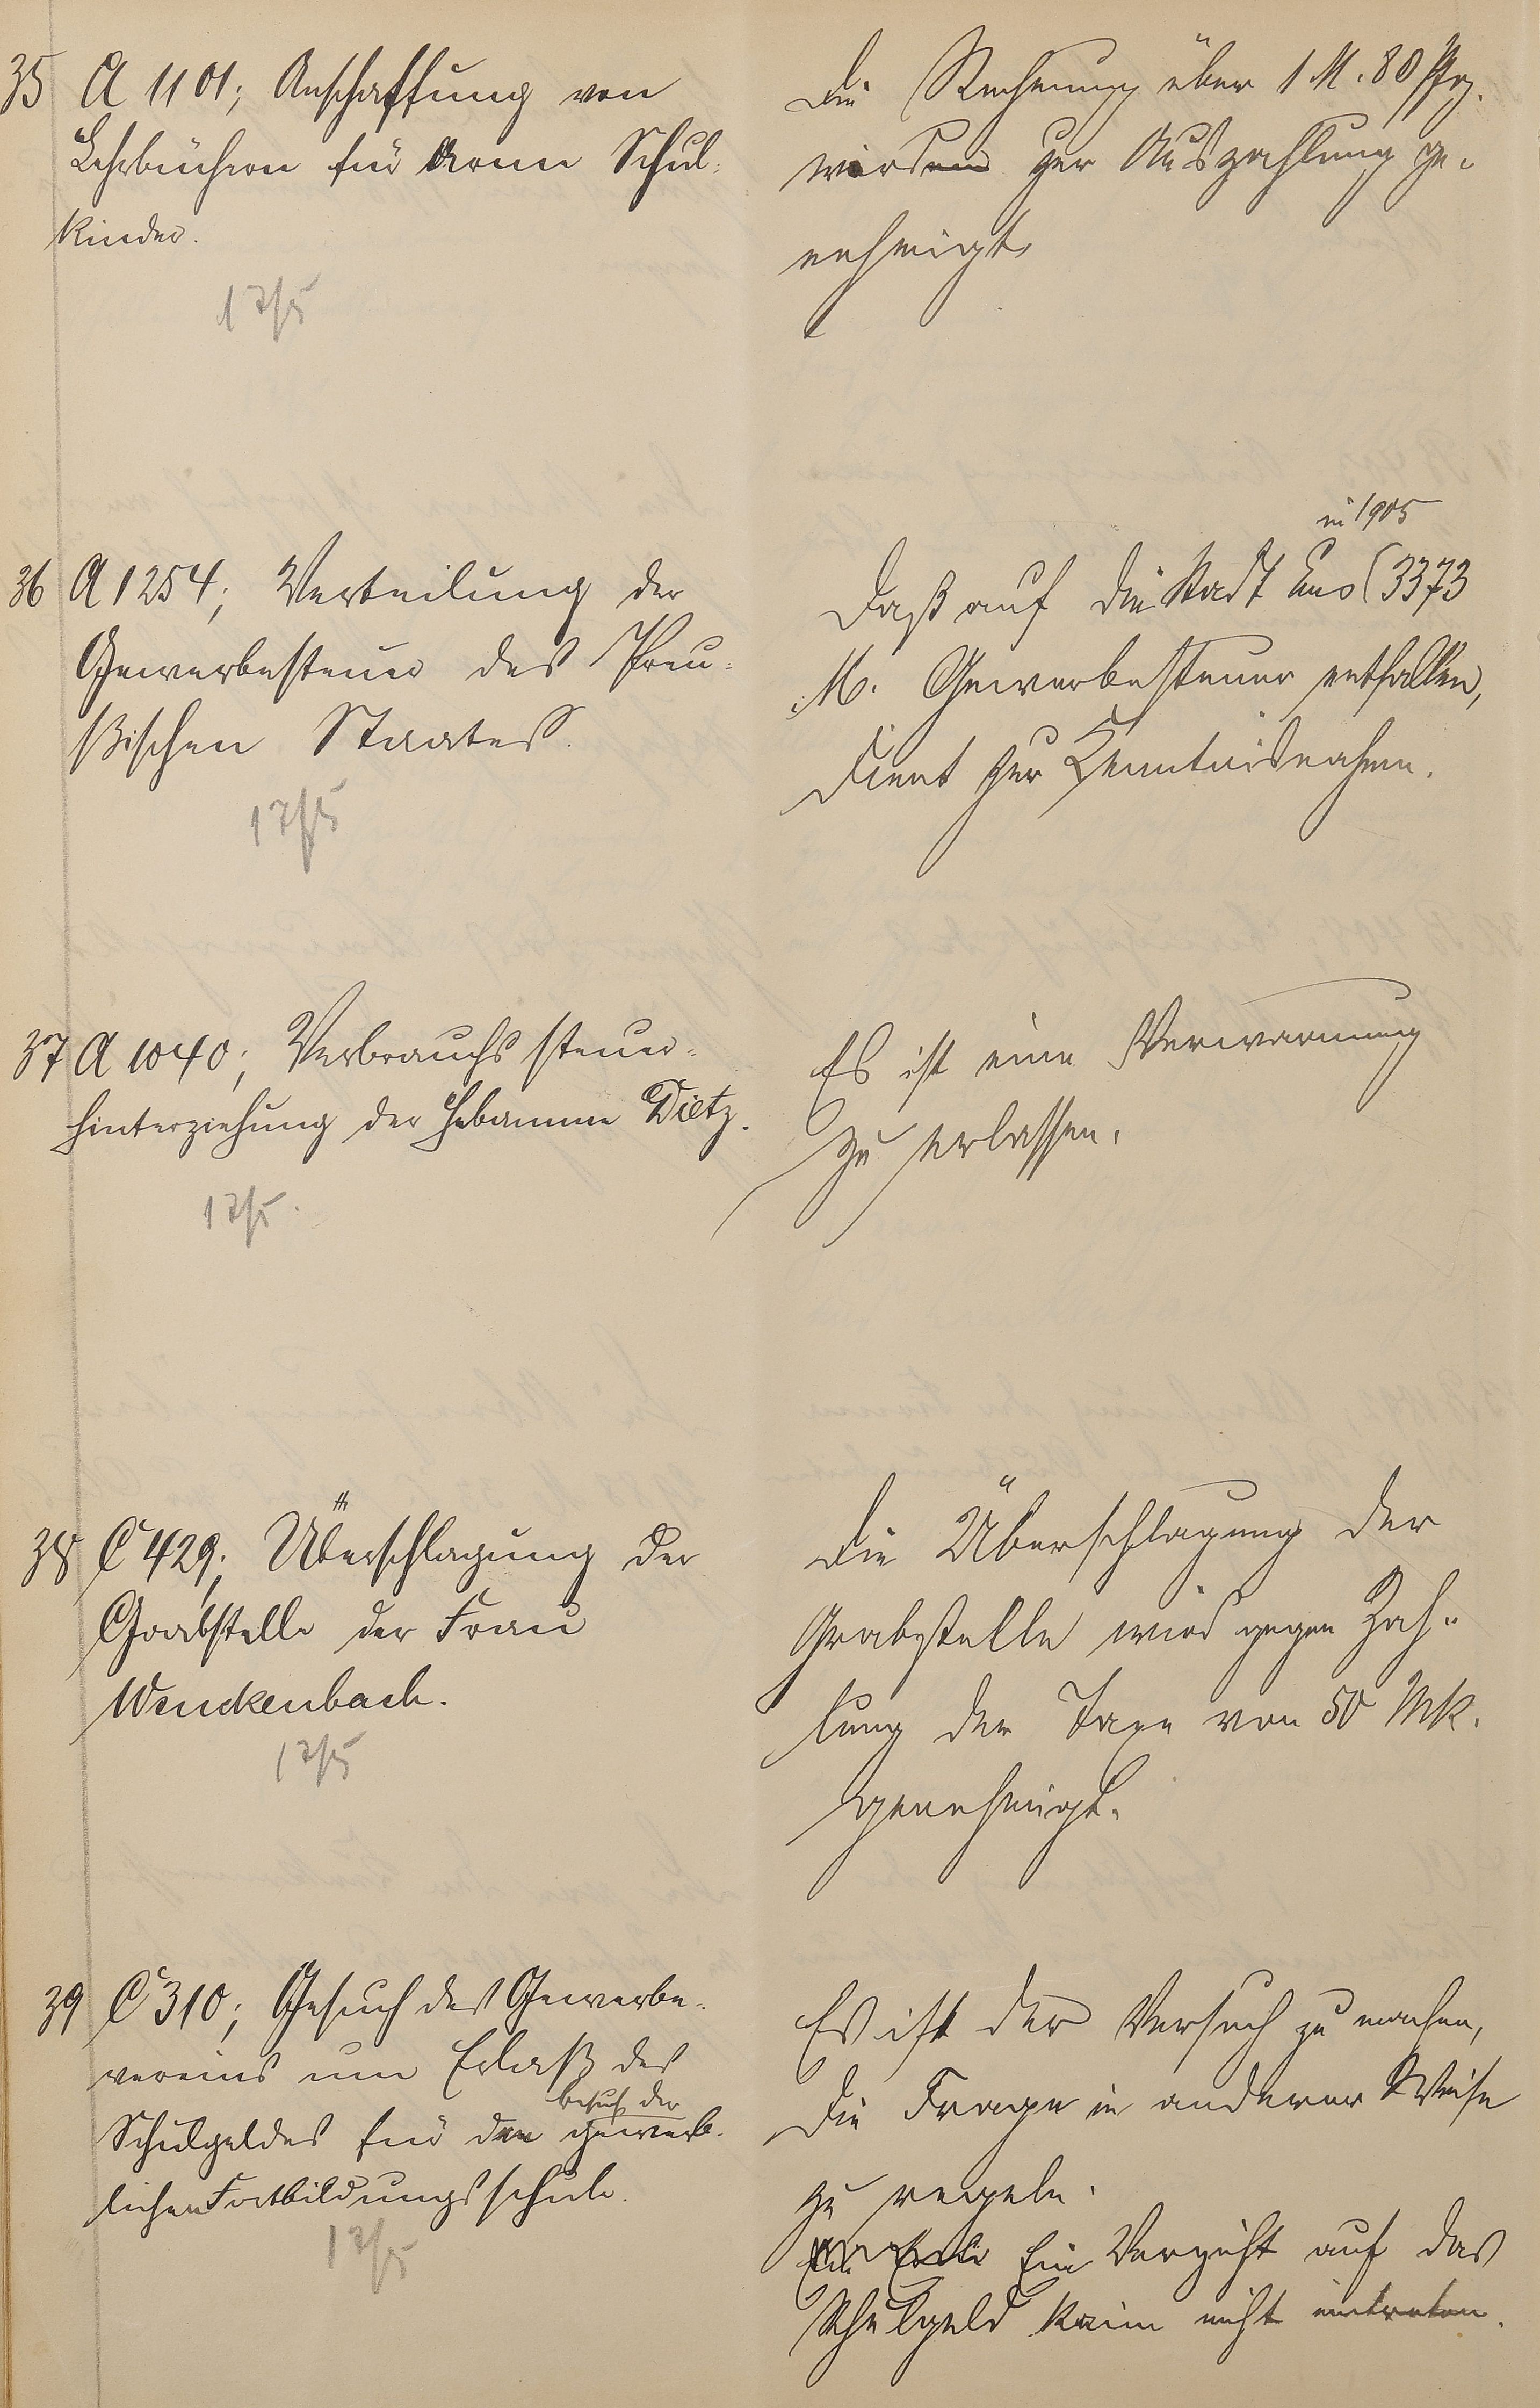 35 A 1101; Anschaffung von
Lehrbüchern für arme Schul-
kinder.
17/5
Die Rechnung über 1 M. 80 Pfg.
wird zur Auszahlung ge-
nehmigt.
36 A 1254; Verteilung der
Gewerbesteuer des Preu-
ßischen Staates.
17/5
in 1905
Daß auf die Stadt Ems (3373
M. Gewerbesteuer entfallen,
dient zur Kenntnisnahme.
37 A 1040; Verbrauchssteuer-
hinterziehung der Hebamme Dietz.
17/5.
Es ist eine Verwarnung
zu erlassen.
38 C 429; Überschlagung der
Grabstelle der Frau
Wenckenbach.
17/5
Die Überschlagung der
Grabstelle wird gegen Zah-
lung der Taxe von 50 Mk.
genehmigt.
39 C 310; Gesuch des Gewerbe-
vereins um Erlaß des
Besuch der
Schulgeldes für den gewerb-
lichen Fortbildungsschule.
17/5
Es ist der Versuch zu machen,
die Frage in anderer Weise
zu regeln.
Ein Verzicht auf das
Schulgeld kann nicht eintreten.